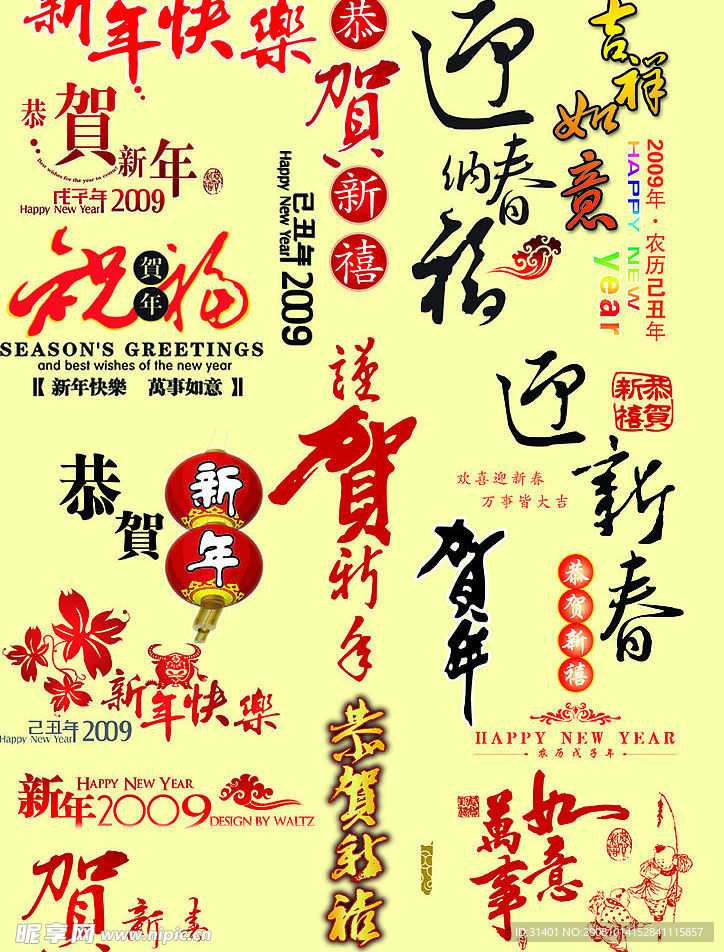 新年快樂
恭賀新年
Best wishes for the year to come!
戊子年
Happy New Year 2009
恭賀新禧
己丑年
Happy New Year 2009
迎春纳福
吉祥如意
2009年·农历己丑年
HAPPY NEW year
祝福
賀年
SEASON'S GREETINGS
and best wishes of the new year
〖 新年快樂 萬事如意 〗
謹賀新年
迎新春
恭賀新禧
欢喜迎新春
万事皆大吉
恭賀
新年
贺年
恭贺新禧
新年快樂
己丑年
Happy New Year 2009
恭贺新禧
HAPPY NEW YEAR
农历戊子年
新年2009
HAPPY NEW YEAR
DESIGN BY WALTZ
萬事如意
贺新春
昵享网 www.nipic.cn
ID:31401 NO:20081014152841115857